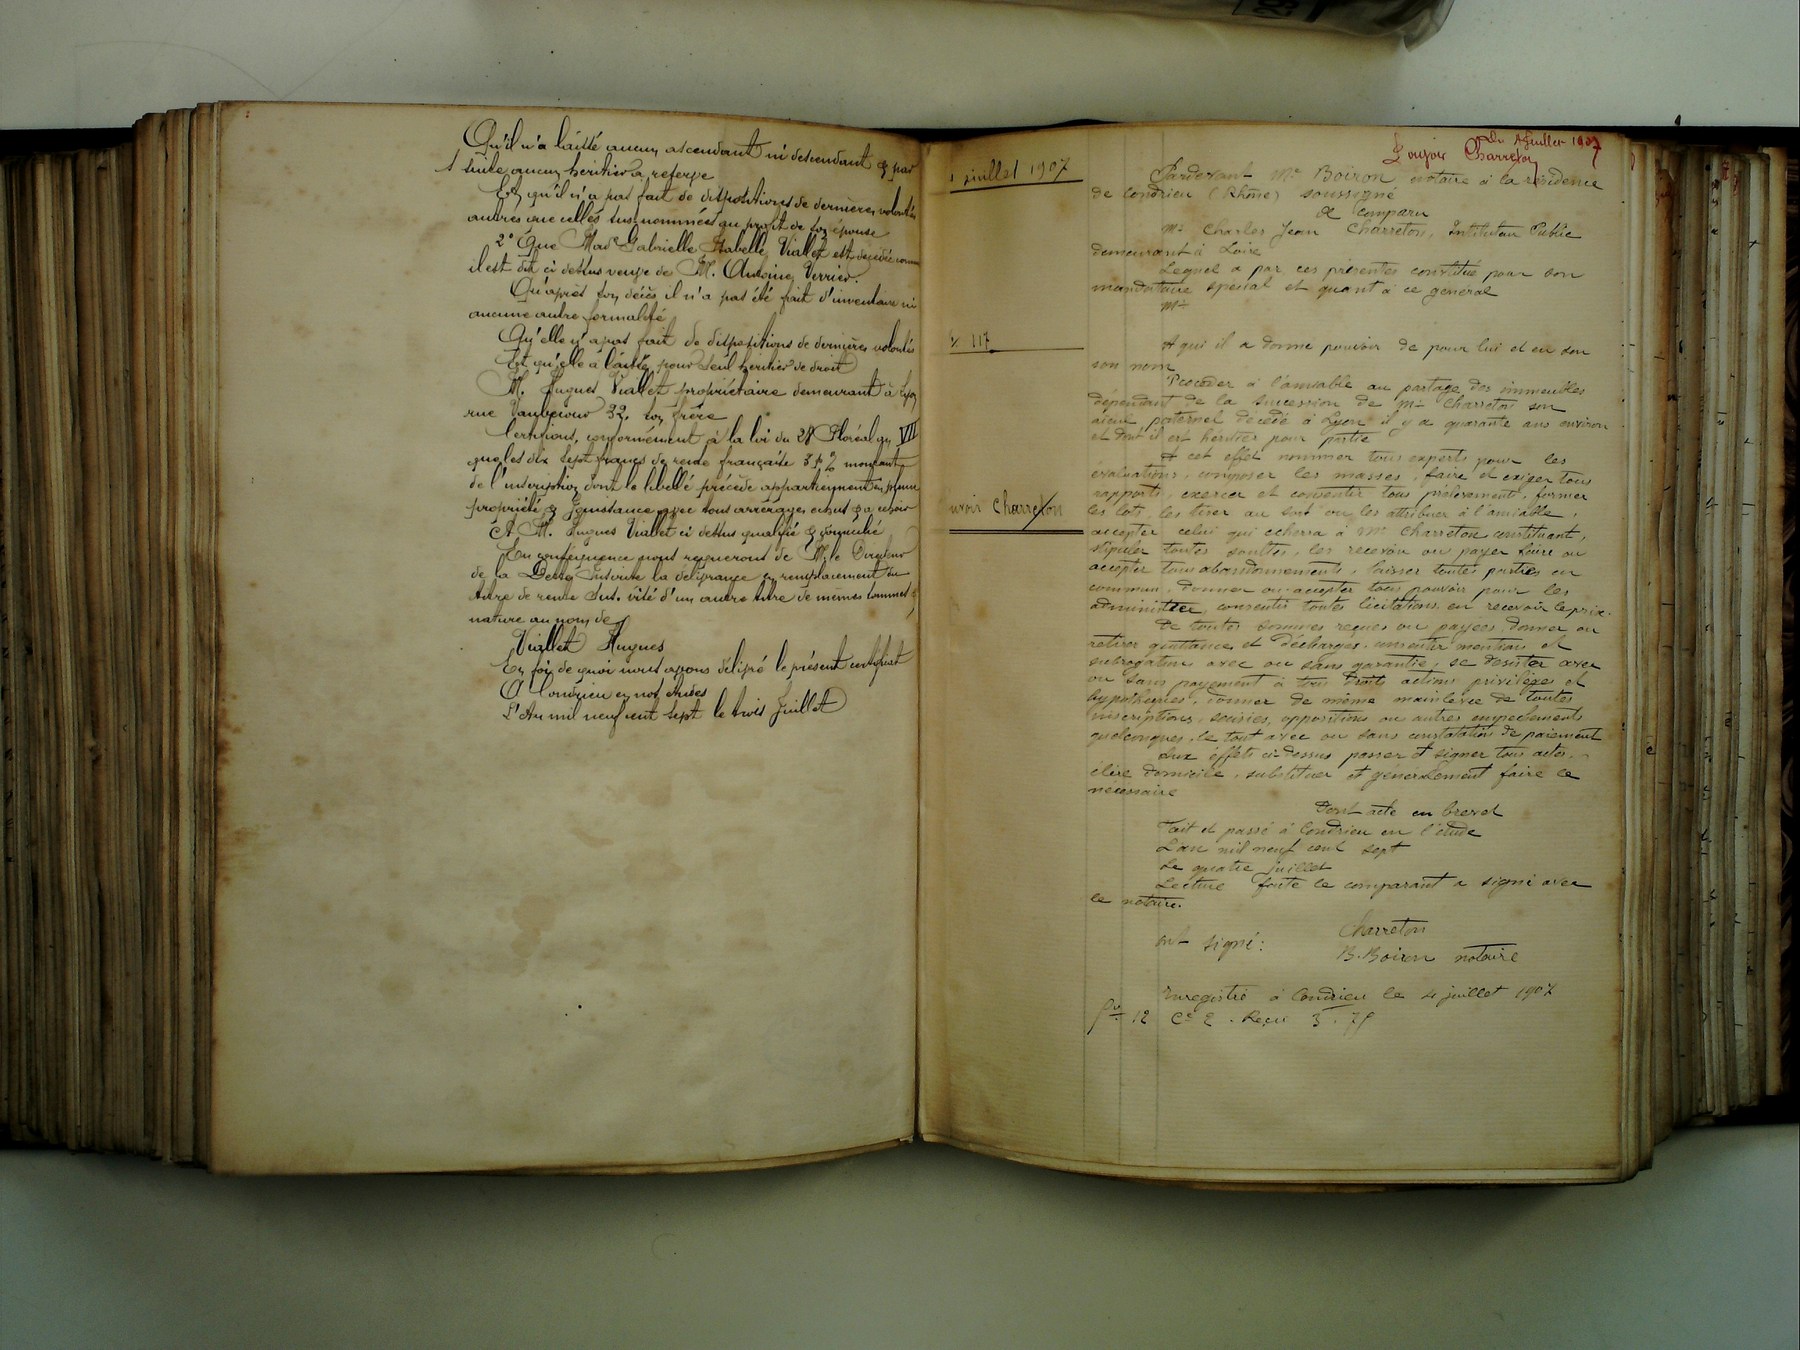 Qu'il n'a laissé aucun ascendant ni descendant & par
suite aucun héritier à réserve
Et qu'il n'a pas fait de dispositions de dernières volontés
autres que celles susnommées au profit de son épouse
2° Que Mad Gabrielle Isabelle Viallet est décédée comme
il est dit ci dessus veuve de M. Antoine Verrier.
Qu'après son décès il n'a pas été fait d'inventaire ni
aucune autre formalité
Qu'elle n'a pas fait de dispositions de dernières volontés
Et qu'elle a laissé pour seul héritier de droit
M. Hugues Viallet propriétaire demeurant à Lyon
rue Vaubecour 32, son frère
Certifions, conformément à la loi du 28 Floréal an VII
que les dix sept francs de rente française 3 p % montant
de l'inscription dont le libellé précède appartiennent en pleine
propriété & jouissance avec tous arrérages échus & à échoir
A M. Hugues Viallet ci dessus qualifié & domicilié
En conséquence nous requerons de M. le Directeur
de la Dette Inscrite la délivrance en remplacement du
titre de rente sus. visé d'un autre titre de mêmes somme &
nature au nom de
Viallet Hugues
En foi de quoi nous avons délivré le présent certificat
A Condrieu en nos études
L'An mil neuf cent sept le trois Juillet
Du 4 Juillet 1907
Pouvoir Charreton
juillet 1907
117
Charreton
Pardevant Me Boiron notaire à la résidence
de Condrieu (Rhône) soussigné
A comparu
Mr Charles Jean Charreton, Instituteur Public
demeurant à Loire
Lequel a par ces présentes constitué pour son
mandataire spécial et quant à ce général
Mr
A qui il a donné pouvoir de pour lui et en son
son nom
Procéder à l'amiable au partage des immeubles
dépendant de la succession de Mr Charreton son
aïeul paternel décédé à Lyon il y a quarante ans environ
et dont il est héritier pour partie
A cet effet nommer tous experts pour les
évaluations, composer les masses, faire et exiger tous
rapports, exercer et consentir tous prélèvements, former
les lots, les tirer au sort ou les attribuer à l'amiable,
accepter celui qui echerra à Mr Charreton constituant,
stipuler toutes soultes, les recevoir ou payer faire ou
accepter tous abandonnements, laisser toutes parties en
commun, donner ou accepter tous pouvoir pour les
administrer, consentir toutes licitations en recevoir le prix.
De toutes sommes reçues ou payées donner ou
retirer quittances et décharges consentir mentions et
subrogations avec ou sans garantie, se désister avec
ou sans payement à tous droits actions privilèges et
hypothèques, donner de même mainlevée de toutes
inscriptions, saisies, oppositions ou autres empêchements
quelconques, le tout avec ou sans constatation de paiement
Aux effets ci-dessus passer et signer tous actes,
élire domicile, substituer et généralement faire le
nécessaire
Dont acte en brevet
Fait et passé à Condrieu en l'étude
L'an mil neuf cent sept
Le quatre juillet
Lecture faite le comparant a signé avec
le notaire.
ont signé: Charreton
B. Boiron notaire
Enregistré à Condrieu le 4 juillet 1907
fo 12 Ce 2. Reçu 3.75